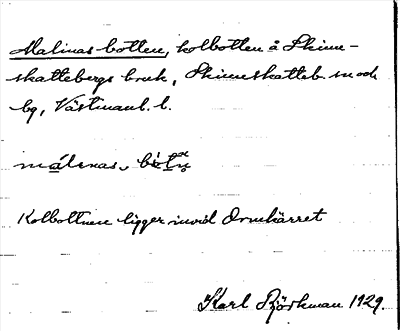 Malinas botten, kolbotten å Skinn-
skattebergs bruk, Skinnskatteb. sn och
bg, Västmanl. l.
målinas,
Kolbottnen ligger invid Ormkärret
Karl Björkman 1929.